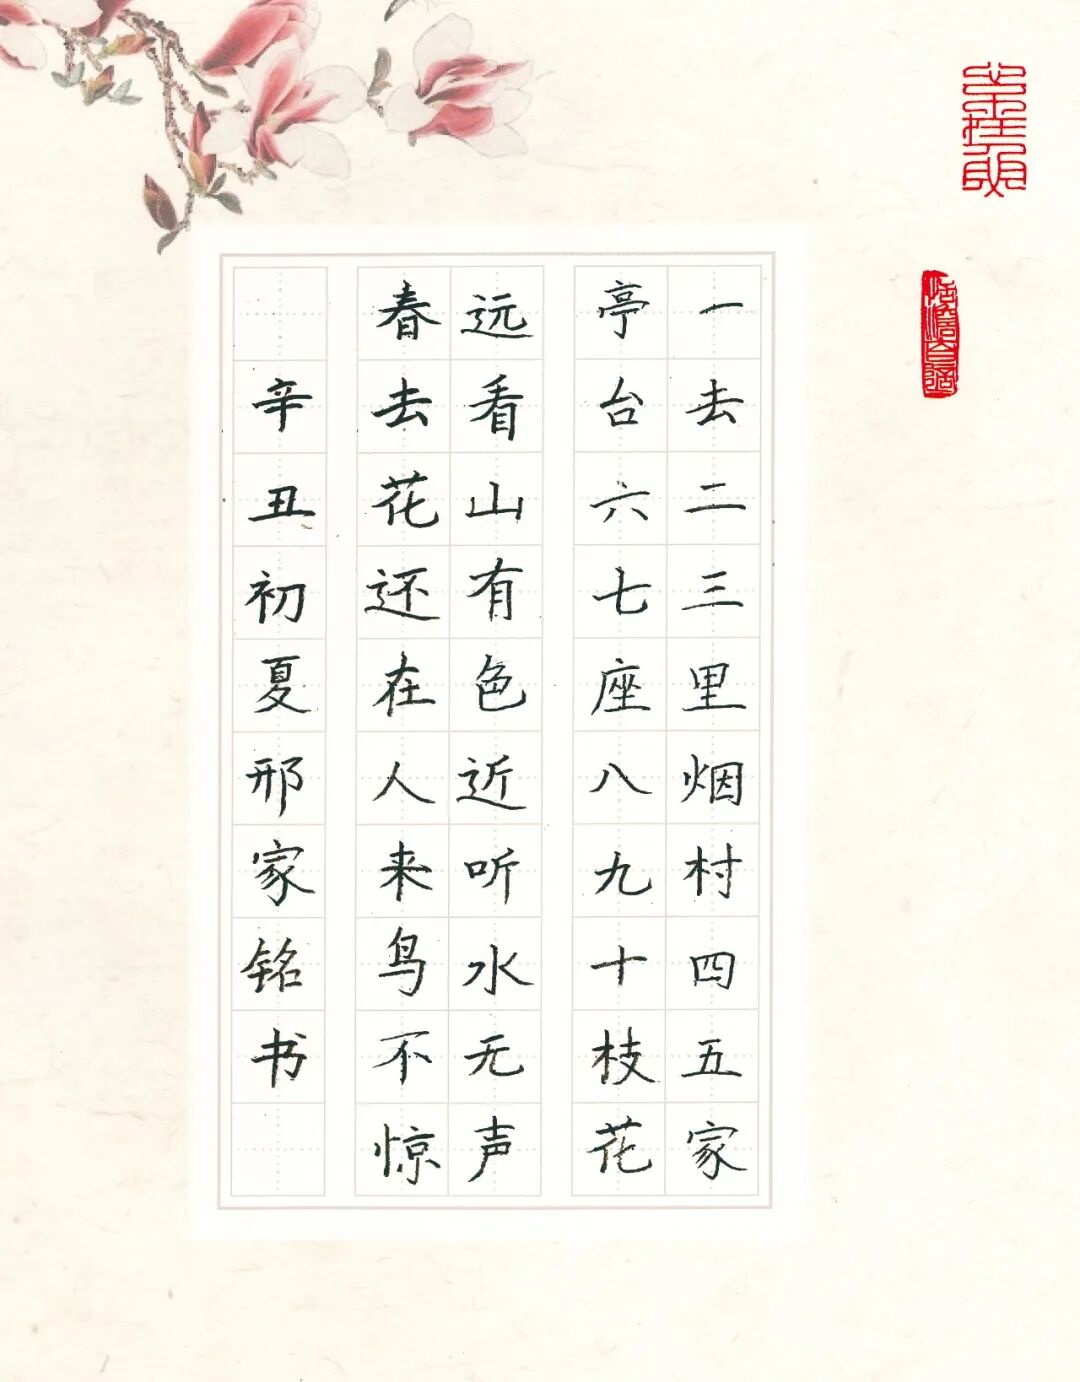 一去二三里烟村四五家
亭台六七座八九十枝花
远看山有色近听水无声
春去花还在人来鸟不惊
辛丑初夏邢家铭书